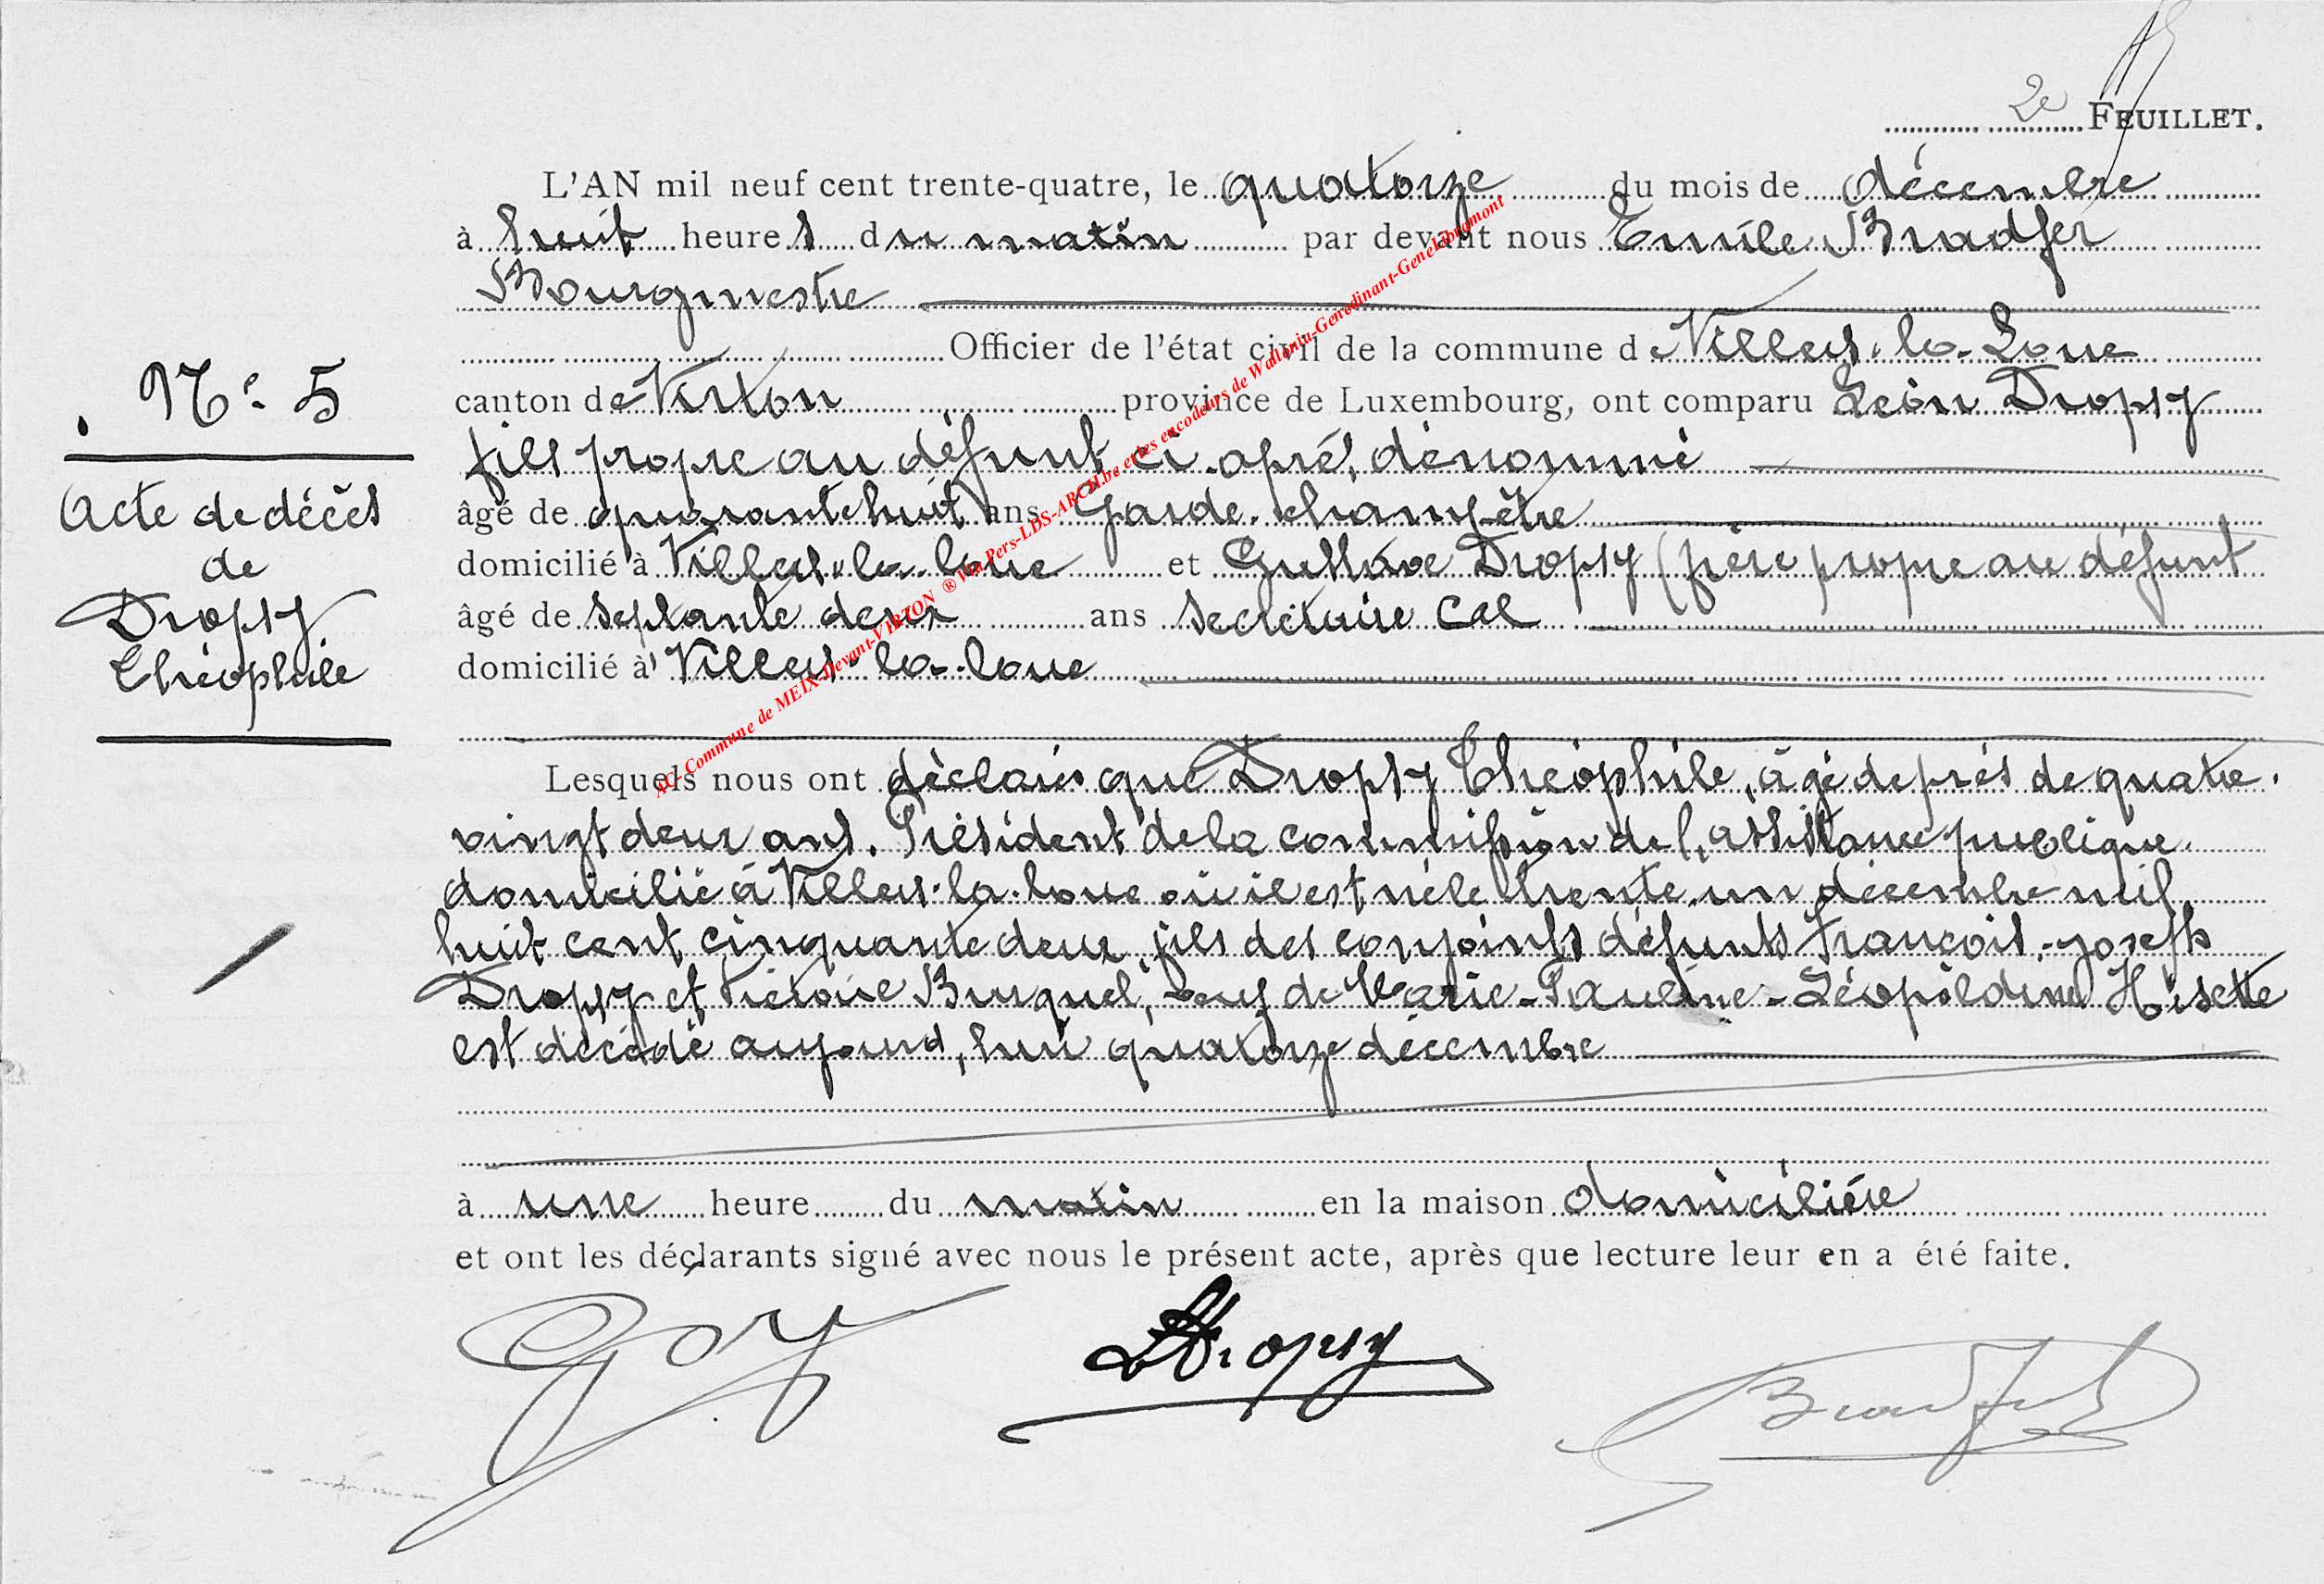 2e FEUILLET.
L'AN mil neuf cent trente-quatre, le quatorze du mois de décembre
à huit heures du matin par devant nous Emile Bradfer
Bourgmestre
Officier de l'état civil de la commune de Villers-la-Loue
canton de Virton province de Luxembourg, ont comparu Léon Dropsy
fils propre au défunt ci-après dénommé
âgé de quarante huit ans Garde-champêtre
domicilié à Villers-la-loue et Gustave Dropsy (frère propre au défunt
âgé de septante deux ans secrétaire Cal
domicilié à Villers-la-loue
N° 5
Acte de décès
de
Dropsy
Théophile
Lesquels nous ont déclaré que Dropsy Théophile, âgé de près de quatre-
vingt deux ans. Président de la commission de l'assistance publique.
domicilié à Villers-la-loue où il est né le trente-un décembre mil
huit cent cinquante deux, fils des conjoints défunts François-Joseph
Dropsy et Victoire Buquel, veuf de Marie-Pauline-Léopoldine Hisette
est décédé aujourd'hui quatorze décembre
à une heure du matin en la maison domiciliére
et ont les déclarants signé avec nous le présent acte, après que lecture leur en a été faite.
LDropsy
Bradfer
AC-Commune de MEIX-Devant-VIRTON ® Via Pers-LDS-ARCH.be et les encodeurs de Wallonia-Genedinant-GeneLibramont